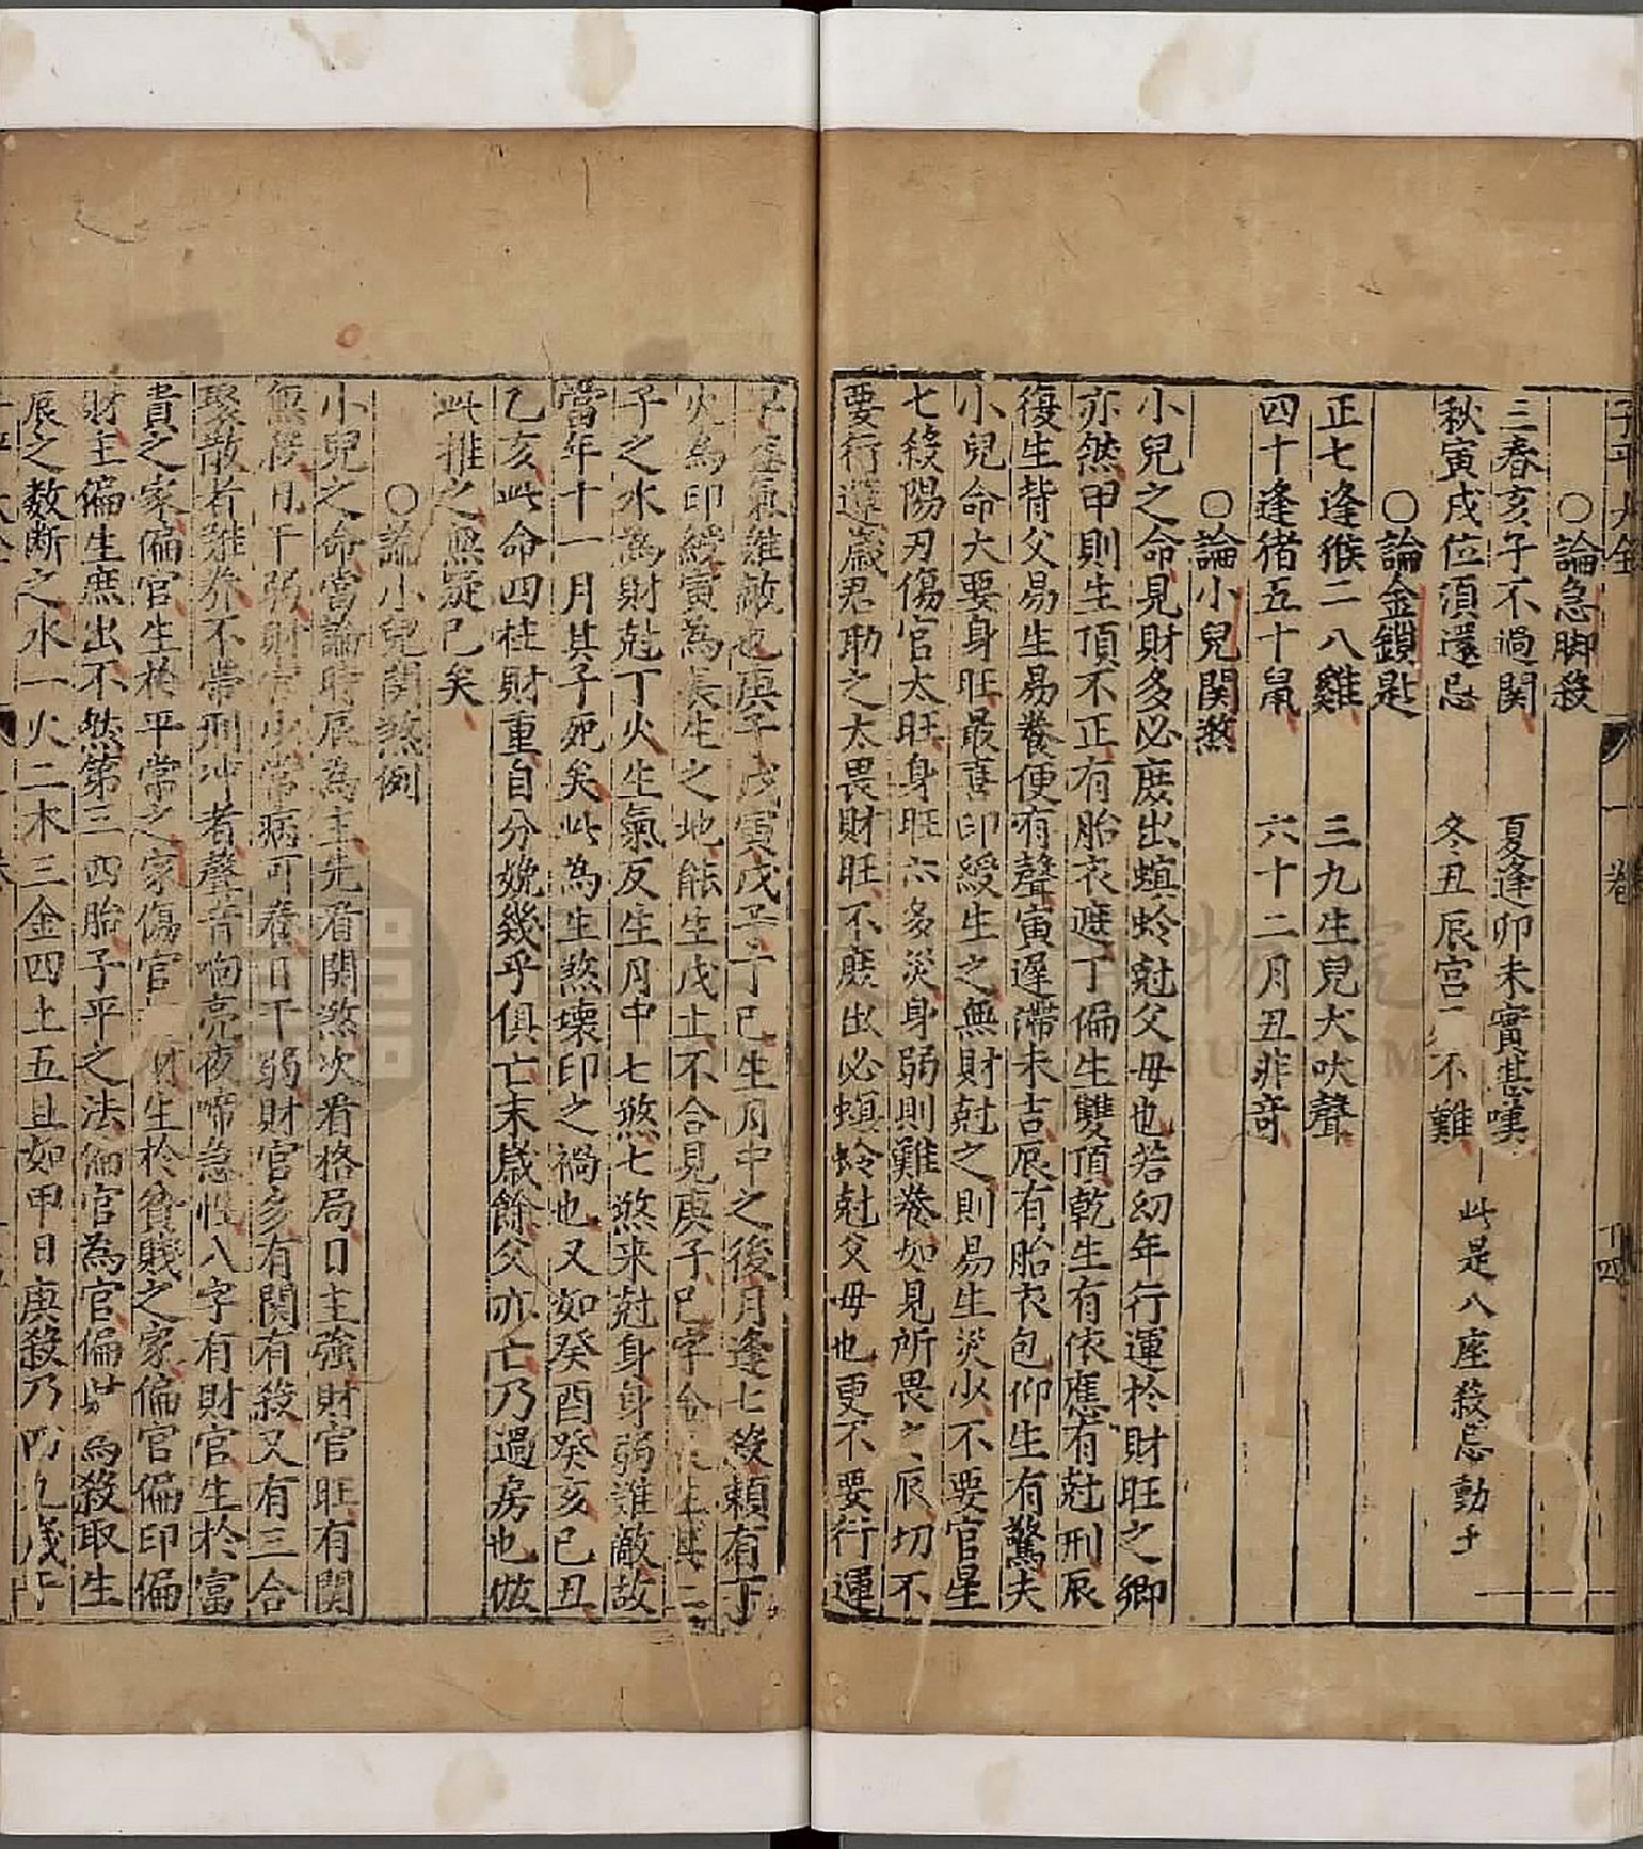 子平大全
一卷
十四
○論急脚殺
三春亥子不過関 夏逢卯未實堪嘆
秋寅戌位須還忌 冬丑辰宮 不難
此是八座殺忌動土
○論金鎖匙
正七逢猴二八雞 三九生兒犬吠聲
四十逢猪五十鼠 六十二月丑非竒
○論小兒関煞
小兒之命見財多必庶出螟蛉尅父母也若幼年行運於財旺之鄉
亦然甲則生頂不正有胎衣遮丁偏生雙頂乾生有依應有尅刑辰
復生背父易生易養便有聲寅遲滯未吉辰有胎衣包仰生有驚夫
小兒命大要身旺最喜印綬生之無財尅之則易生災少不要官星
七殺陽刃傷官太旺身旺亦多災身弱則難養如見所畏之辰切不
要行運歲君助之太畏財旺不庶出必螟蛉尅父母也更不要行運
子 氣難敵也庚子戊寅戊子丁巳生月中之後月逢七殺頼有丁
火為印綬寅為長生之地能生戊土不合見庚子巳字合 生其二
子之水為財尅丁火生氣反生月中七煞七煞来尅身身弱難敵故
當年十一月其子死矣此為生煞壞印之禍也又如癸酉癸亥己丑
乙亥此命四柱財重自分娩幾乎俱亡末歲餘父亦亡乃過房也倣
此推之無疑已矣
○論小兒関煞例
小兒之命當論時辰為主先看関煞次看格局日主強財官旺有関
無殺月干弱財官少常病可養日干弱財官多有関有殺又有三合
聚散者難养不帶刑冲者聲音响亮夜啼急性八字有財官生於富
貴之家偏官生於平常之家傷官 財生於貧賤之家偏官偏印偏
財主偏生庶出不然第三四胎子平之法 官為官偏 為殺取生
辰之数断之水一火二木三金四土五且如甲日庚殺乃 九歲